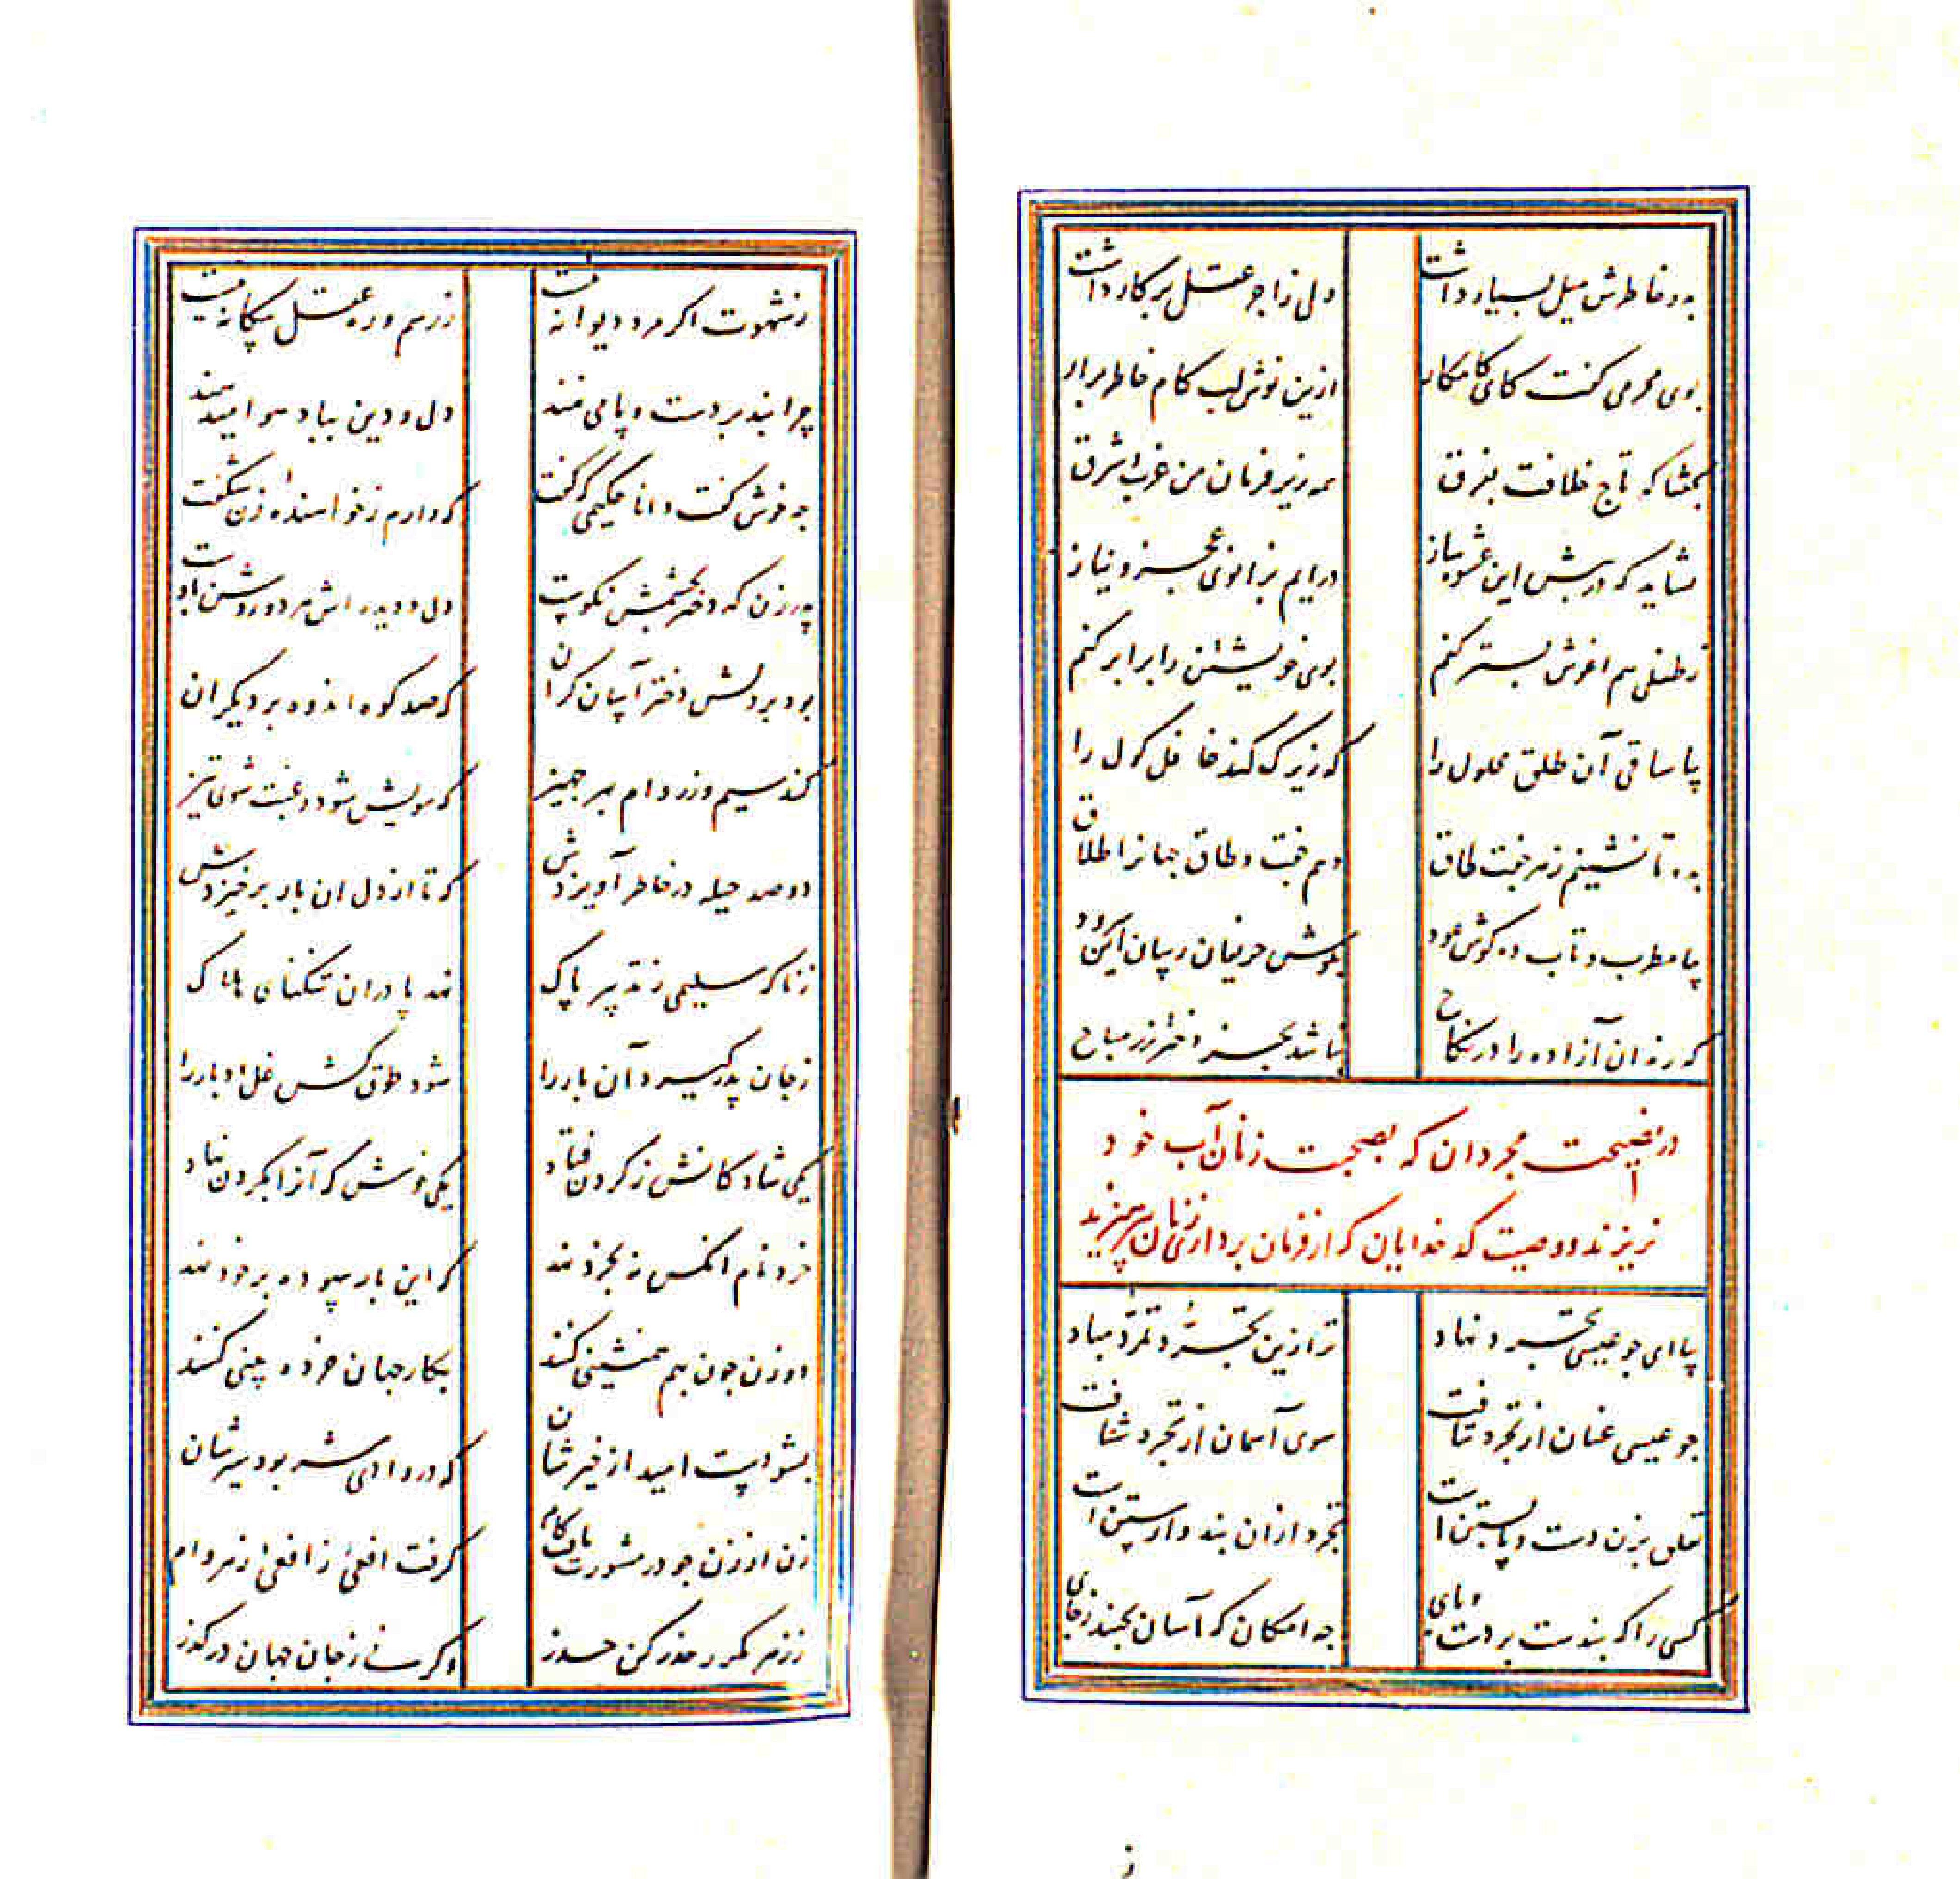 به و خاطرش میل بسیار داشت ولی زاجر عقل بر کار داشت
بوی محرمی کفت کای کامکار ازین نوش لب کام خاطر برار
بکفتا که تاج خلافت بفرق همه زیر فرمان من غرب و شرق
نشاید که در پیش این عشوه ساز درایم بزانوی عجز و نیاز
ز طفلی هم اغوش بستر کنم بوی خویشتن را برابر کنم
بیا ساقی آن طلق محلول را که زیرک کند غافل کول را
بده تا نشینم ز هر جفت طاق دهم جفت و طاق جهانرا طلاق
بیا مطرب و تاب ده کوش عود بکوش حریفان رسان این سرود
که رندان آزاده را در نکاح نباشد بجز دختر رز مباح
در نصیحت مجردان که بصحبت زنان آب خود
نریزند و وصیت کدخدایان که از فرمان برداری زنان بپرهیزند
بیا ای چو عیسی تجرد نهاد ترا زین تجرد تمرد مباد
چو عیسی عنان از تجرد نتافت سوی آسمان از تجرد شتافت
تعلق بزن دست و پا بستن است تجرد ازان بند وارستن است
کسی را که بندست بر دست و پای چه امکان که آسان بجنبد ز جای
ز شهوت اکر مرد دیوانه نیست ز رسم و ره عقل بیکانه نیست
چرا بند بر دست و پا می نهد دل و دین بباد هوا میدهد
چه خوش کفت دانا حکیمی که کفت که دارم ز خواهنده زن شکفت
پدر زن که دختر بچشمش نکوست دل و دیده اش هر دو روشن باوست
بود بر دلش دختر آسان کران که صد کوه اندوه بر دیکران
کند سیم و زر وام بهر جهیز که سویش شود رغبت شوی تیز
دو صد حیله در خاطر آویزدش که تا از دل ان بار برخیزدش
ز ناکه سلیمی ز تدبیر پاک نهد پا دران تنکنای هلاک
ز جان پدر کیرد آن بار را شود طوق کش غل ادبار را
یکی شاد کانش ز کردن فتاد یکی خوش که آنرا بکردن نهاد
خرد نام انکس نه بخرد نهد که این بار بیهوده بر خود نهد
دو زن چون بهم همنشینی کنند بکار جهان خرده بینی کنند
بشو دست امید از خیرشان که در وادی شر بود سیرشان
زن از زن چو در مشورت یافت کام کرفت افعئ ز افعئ زهر وام
ز زهر مکرر حذر کن حذر اکر نه ز جان جهان درکذر
ز